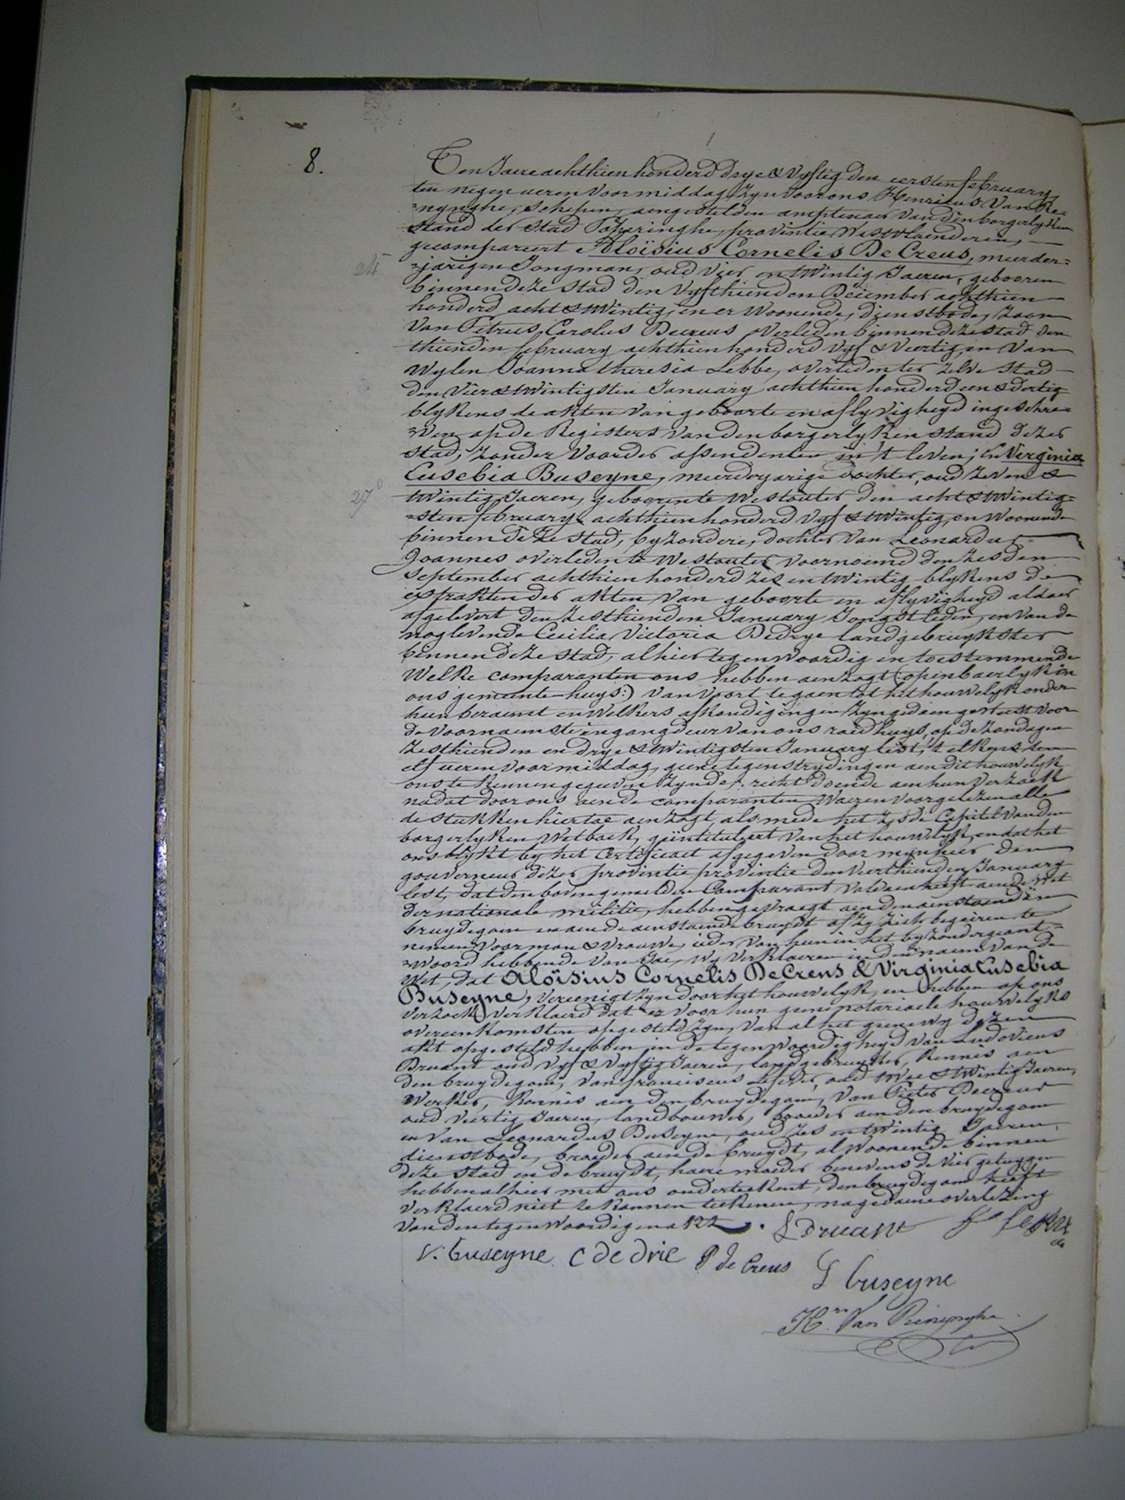 8.
Ten Jaere achthien honderd drye & vyftig den eersten february
ten negen ueren voormiddag, zyn voor ons Henricus Van Re=
=nynghe, Schepen, aengestelden amptenaer van den borgerlyken
stand der stad Poperinghe, provintie Westvlanderen,
gecompareert Aloïsius Cornelis De Creus, meerder=
24
=jarigen Jongman, oud vier en twintig Jaeren, geboren
binnen deze stad den vyfthienden December achthien
honderd acht & twintig, en er woonende, dienstbode, zoon
van Petrus Carolus Decreus overleden binnen deze stad den
thienden february achthien honderd vyf & veertig, en van
wylen Joanna Theresia Lebbe, overleden ter zelve stad
den vier & twintigsten January achthien honderd een & dertig
blykens de akten van geboorte en aflyvigheyd ingeschre=
=ven op de Registers van den borgerlyken stand dezer
stad, zonder voorder assendenten in 't leven; en Virginia
Eusebia Buseyne, meerderjarige dochter, oud zeven &
27
twintig Jaeren, geboren te Westouter den acht & twintig=
=sten february achthien honderd vyf & twintig, en woonende
binnen deze stad, byzondere, dochter van Leonardus
Joannes overleden te Westouter voornoemd den zesden
September achthien honderd zes en twintig blykens de
extrakten der akten van geboorte en aflyvigheyd aldaer
afgelevert den zesthienden January Jongstleden, en van de
nog levende Cecilia Victoria Dedrye landgebruykster
binnen deze stad, alhier tegenwoordig en toestemmende
Welke comparanten ons hebben aenzogt (openbaerlyk in
ons gemeente-huys:) van voort te gaen tot het houwelyk onder
hun beraemt en welkers afkondigingen zyn gedaen geweest voor
de voornaemste ingangdeur van ons raedhuys, op de zondagen
zesthienden en drye & twintigsten January lest, 't elkens ten
elf ueren voormiddag, geene tegenstrydingen aen dit houwelyk
ons te kennen gegeven zynde; recht doende aen hun verzoek
nadat door ons aen de comparanten waeren voorgelezen alle
de stukken hiertoe aenzogt, als mede het zesde Capitel van den
borgerlyken Wetboek, geïntituleert Van het houwelyk, en dat het
ons blykt by het Certificaet afgegeven door mynheer den
gouverneur dezer provintie den veerthienden January
lest, dat den bovengemelden Comparant voldaen heeft aen de wet
der nationale militie, hebben gevraegt aen den aenstaenden
bruydegom en aen de aenstaende bruydt of zy zich begeiren te
nemen voor man & vrouwe, ieder van hun in het byzonder geant=
=woord hebbende van Jae, wy verklaeren in den naem van de
Wet, dat Aloïsius Cornelis De Creus & Virginia Eusebia
Buseyne, vereenigt zyn door het houwelyk, en hebben op ons
verzoek verklaerd dat er voor hun geene notariaele houwelyks
overeenkomsten opgesteld zyn, van al het gene wy dezen
akt opgesteld hebben in de tegenwoordigheyd van Ludovicus
Druant oud vyf & vyftig Jaeren, landgebruyker, kennis aen
den bruydegom, van franciscus oud twee & twintig Jaeren,
werker, kennis aen den bruydegom, van Pieter Decreus
oud veertig Jaeren, landbouwer, broeder aen den bruydegom
en van Leonardus Buseyne, oud zes en twintig Jaeren,
dienstbode, broeder aen de bruydt, al woonende binnen
deze stad en de bruydt, haere moeder benevens de vier getuygen
hebben alhier met ons onderteekent, den bruydegom heeft
verklaerd niet te konnen teekenen, nagedaene overlezing
van den tegenwoordigen akt. L Druant
V. buseyne C de drie P de Creus
L buseyne
Hri Van Renynghe